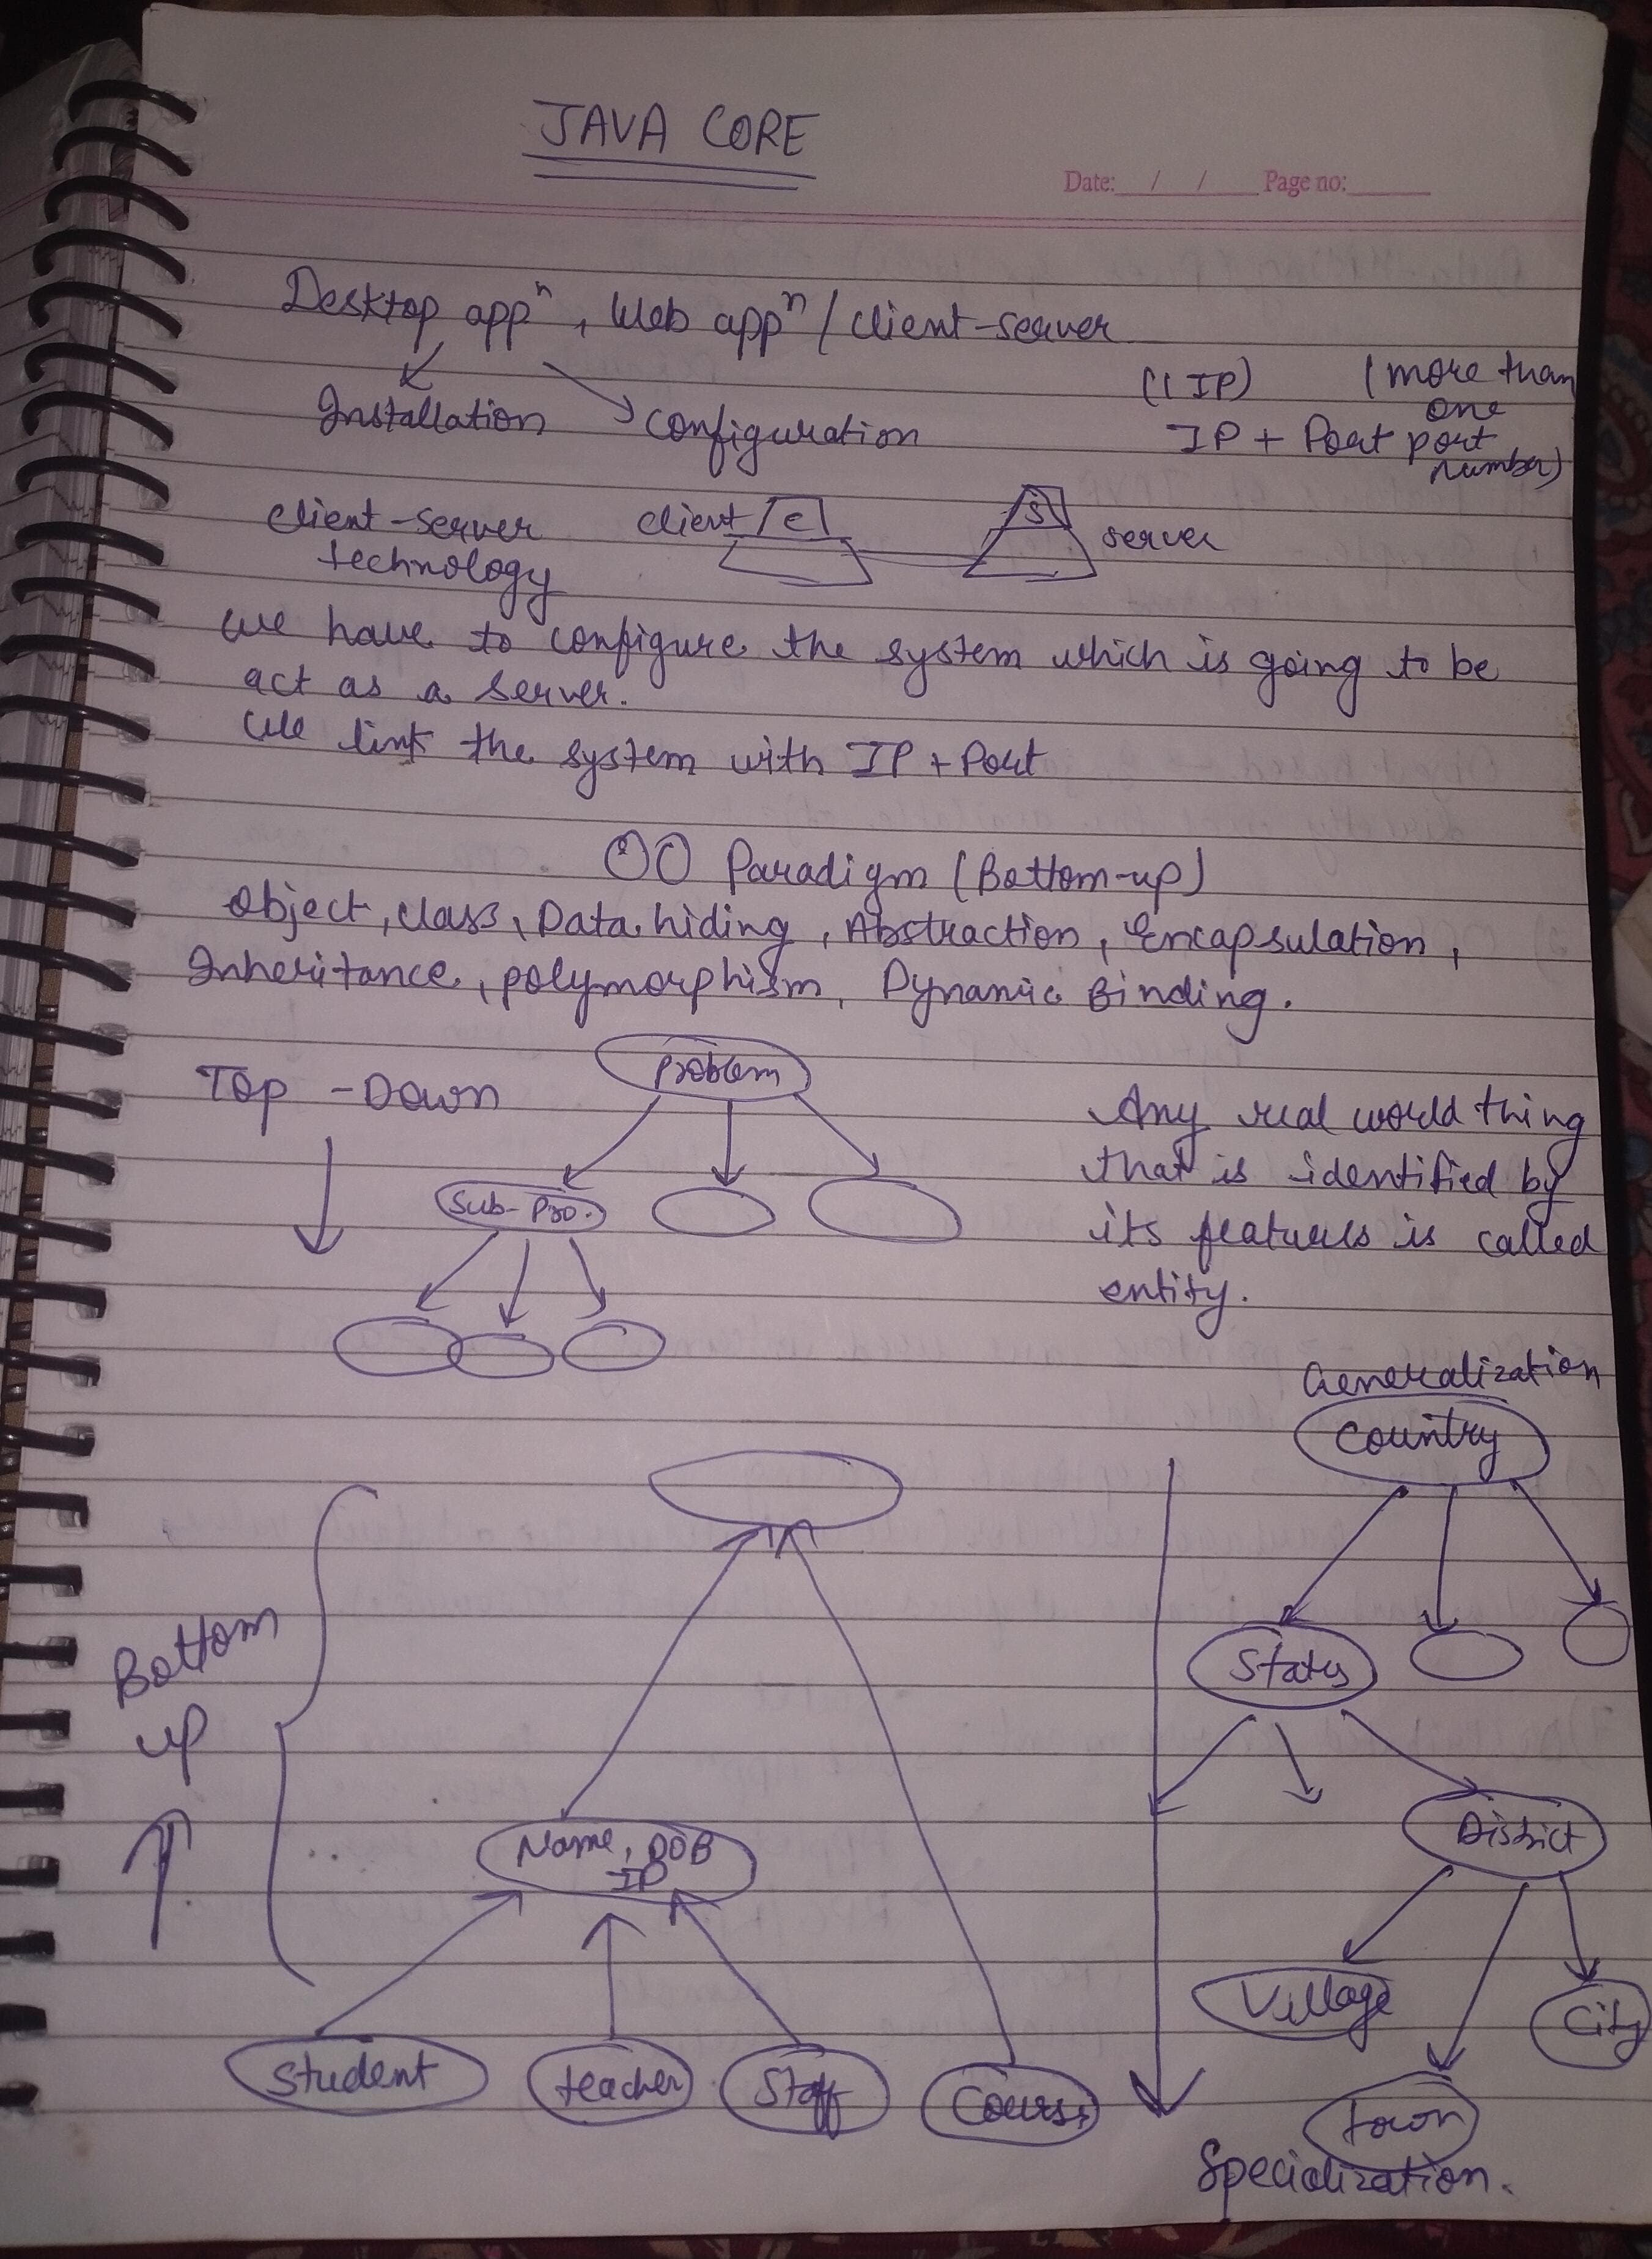 JAVA CORE
Date: / / Page no:
Desktop appⁿ, Web appⁿ / client-server
Installation
configuration
(1 IP) (more than one port number)
IP + Port
client-server technology
client C
S server
we have to configure the system which is going to be
act as a server.
We link the system with IP + Port
OO Paradigm (Bottom-up)
object, class, Data hiding, Abstraction, Encapsulation,
Inheritance, polymorphism, Dynamic Binding.
Top - Down
Problem
Sub-Pro.
Any real world thing
that is identified by
its features is called
entity.
Generalization
Country
States
District
Village
City
Town
Specialization.
Bottom
up
Name, DOB
IP
Student
teacher
Staff
Course